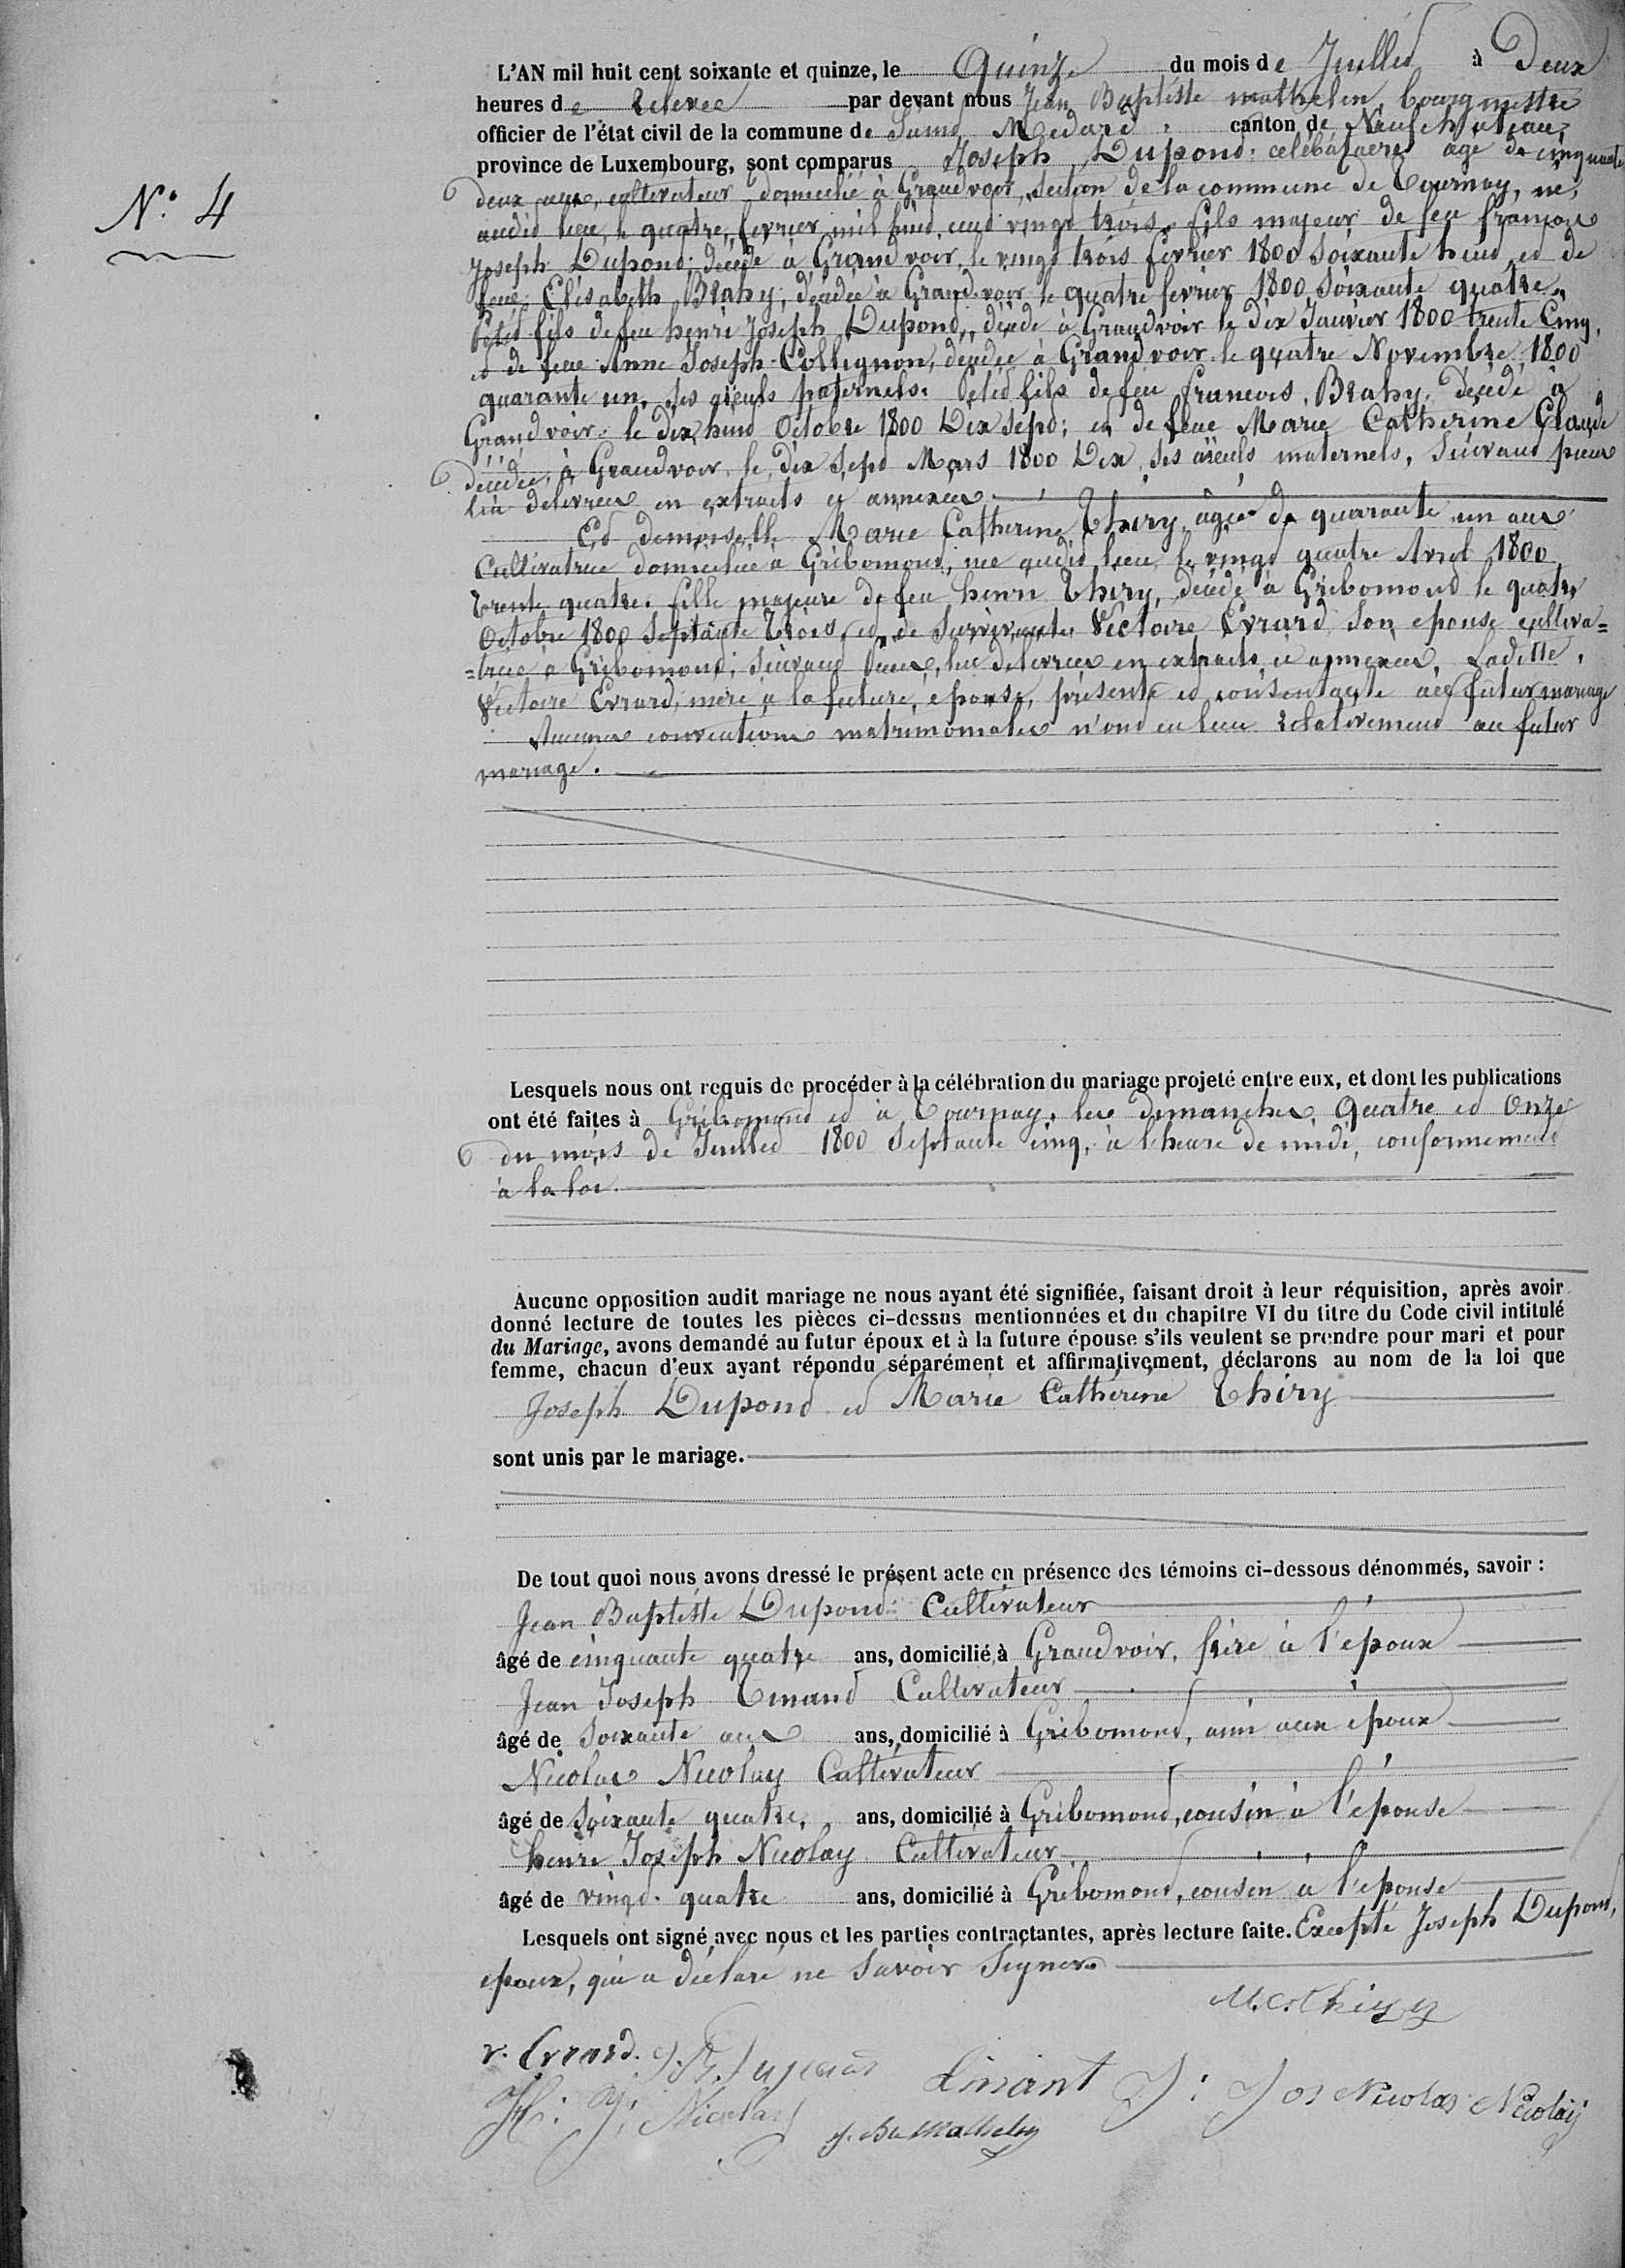 L'AN mil huit cent soixante et quinze, le Quinze du mois de Juillet à Deux
heures de relevée par devant nous Jean Baptiste Mathelin, bourgmestre
officier de l'état civil de la commune de Saint Médard, canton de Neufchateau,
province de Luxembourg, sont comparus Joseph Dupond: célébataire agé de cinquante
N.° 4
deux ans, cultivateur domicilié à Grandvoir, section de la commune de Tournay, né,
audit lieu, le quatre, fevrier mil huit cent vingt trois, fils majeur de feu françois
Joseph Dupond; décédé à Grandvoir, le vingt trois fevrier 1800 soixante huit et de
feue Elisabeth Brahy, décédée à Grandvoir le quatre fevrier 1800 soixante quatre,
Petit fils de feu henri Joseph Dupond, décédé à Grandvoir le dix Janvier 1800 trente Cinq,
et de feue Anne Joseph Collignon, décédée à Grandvoir le quatre Novembre 1800
quarante un, ses aïeuls paternels. Petit fils de feu francois Brahy, décédé à
Grandvoir le dix huit Octobre 1800 Dix Sept; et de feue Marie Catherine Claude
décédée à Grandvoir le dix Sept Mars 1800 Dix, ses aïeuls maternels, Suivant pieces
lui delivrées en extraits et annexées.
Et demoiselle Marie Catherine Thiry, agée de quarante un ans
Cultivatrice domiciliée à Gribomont, née audit lieu, le vingt quatre Avril 1800
trente quatre. fille majeure de feu henri Thiry, décédé à Gribomont le quatre
Octobre 1800 Septante Trois, et de Survivante Victoire Evrard Son epouse cultiva=
=trice à Gribomont; suivant pieces, lui delivrées en extraits et annexées, Laditte,
Victoire Evrard, mère à la future, epouse, présente et consentante au futur mariage
Aucunes conventions matrimoniales n'ont eu lieu relativement au futur
mariage.
Lesquels nous ont requis de procéder à la célébration du mariage projeté entre eux, et dont les publications
ont été faites à Gribomont et à Tournay, les dimanches Quatre et Onze
du mois de Juillet 1800 Septante cinq, à l'heure de midi, conformement
à la loi.
Aucune opposition audit mariage ne nous ayant été signifiée, faisant droit à leur réquisition, après avoir
donné lecture de toutes les pièces ci-dessus mentionnées et du chapitre VI du titre du Code civil intitulé
du Mariage, avons demandé au futur époux et à la future épouse s'ils veulent se prendre pour mari et pour
femme, chacun d'eux ayant répondu séparément et affirmativement, déclarons au nom de la loi que
Joseph Dupond et Marie Catherine Thiry
sont unis par le mariage.
De tout quoi nous avons dressé le présent acte en présence des témoins ci-dessous dénommés, savoir :
Jean Baptiste Dupond: Cultivateur
âgé de cinquante quatre ans, domicilié à Grandvoir, frère à l'epoux
Jean Joseph Cultivateur
âgé de soixante ans ans, domicilié à Gribomont, ami aux epoux
Nicolas Nicolay Cultivateur
âgé de soixante quatre, ans, domicilié à Gribomont, cousin à l'epouse
henri Joseph Nicolay Cultivateur
âgé de vingt quatre ans, domicilié à Gribomont, cousin à l'epouse
Lesquels ont signé avec nous et les parties contractantes, après lecture faite. Excepté Joseph Dupond,
epoux, qui a déclaré ne Savoir Signer.
M.C. Thiry
v. Evrard. J.B. Dupont
H: J: Nicolay J: Jos Nicolas Nicolaÿ
J. Bte Mathelin